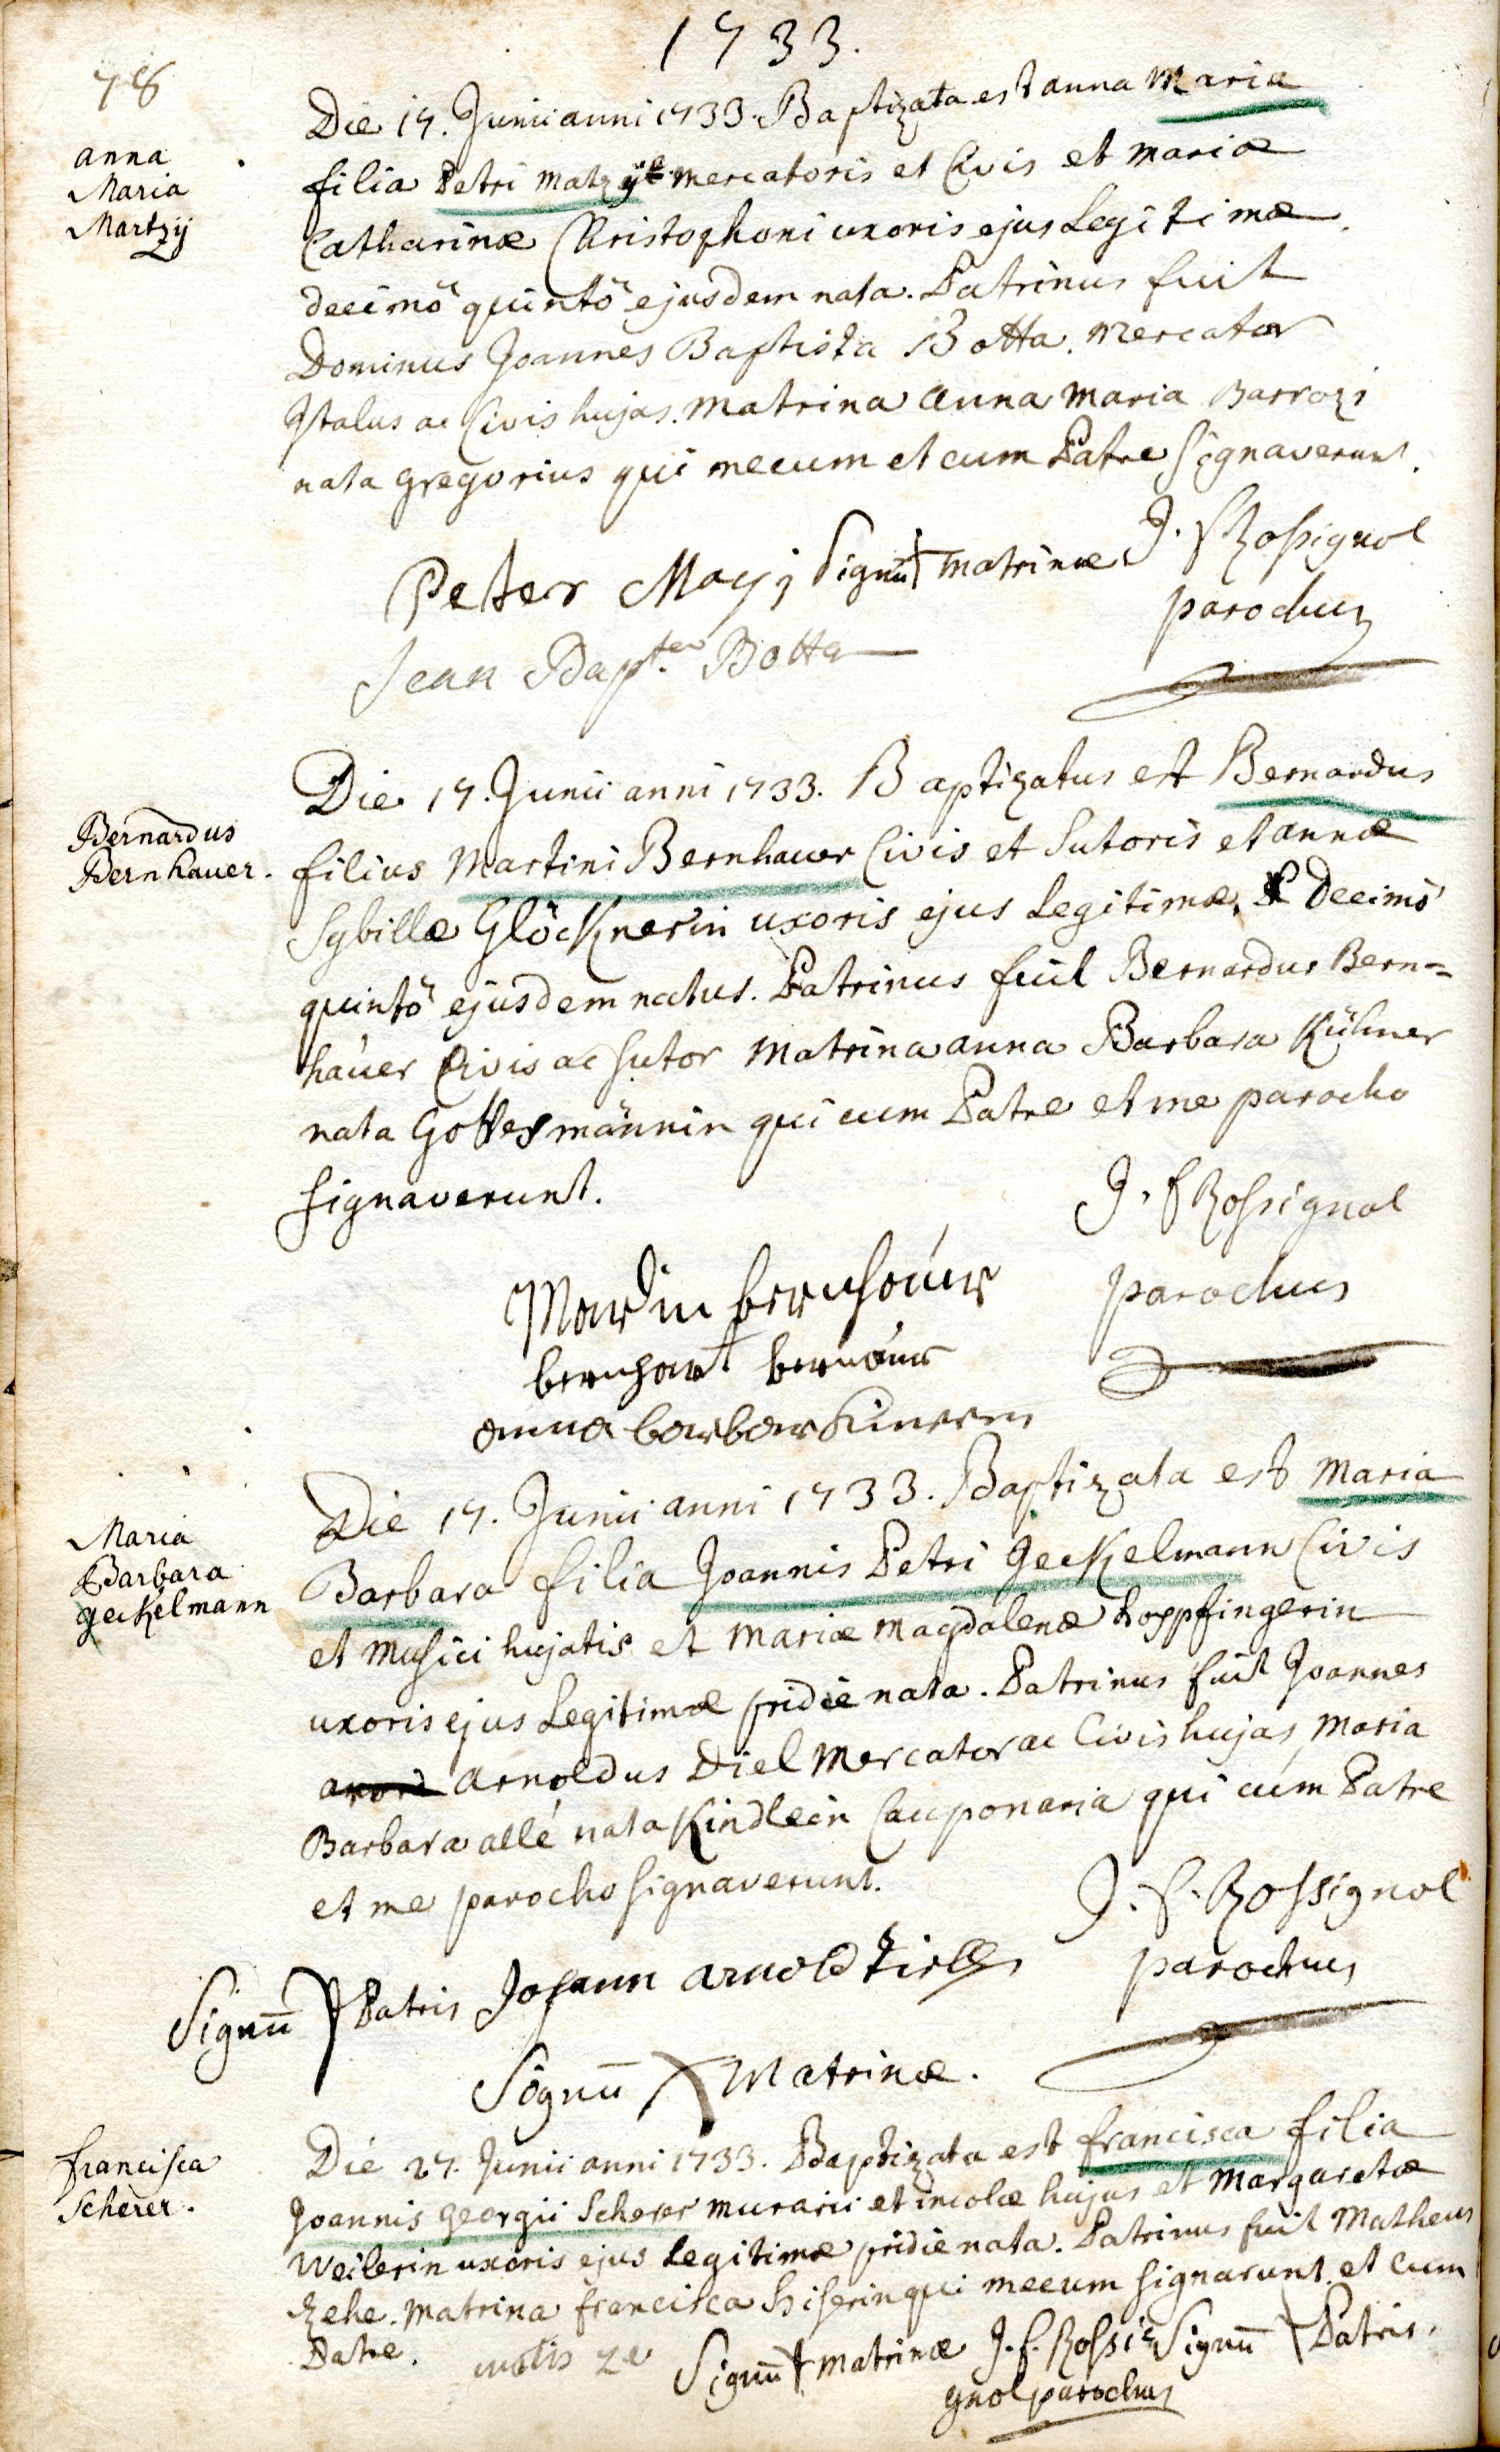 1733.
78
anna
Maria
Martzij
Die 17. Junii anni 1733. Baptizata est anna Maria
filia Petri Matzij mercatoris et Civis et mariæ
Catharinæ Christophori uxoris ejus Legitimæ.
decimô quintô ejusdem nata. Patrinus fuit
Dominus Joannes Baptista Botta. Mercator
Italus ac Civis hujas. Matrina Anna Maria Barrozi
nata gregorius qui mecum et cum Patre signaverunt.
Peter Matzj Signū † matrinæ J. f Rossignol
parochus
Jean Bapta Botta
Bernardus
Bernhauer.
Die 17. Junii anni 1733. Baptizatus est Bernardus
filius Martini Bernhauer Civis et Sutoris et annæ
Sybillæ Glöcknerin uxoris ejus Legitimæ. Decimô
quintô ejusdem natus. Patrinus fuit Bernardus Bern=
hauer Civis ac Sutor Matrina anna Barbara Kühner
nata Gottesmännin qui cum Patre et me parocho
signaverunt.
J. f Rossignol
parochus
Mardin bernhauer
bernhart bernauer
anna barbar Kinerin
Maria
Barbara
geckelmann
Die 17. Junii anni 1733. Baptizata est Maria
Barbara filia Joannis Petri Geckelmann Civis
et Musici hujatis et Mariæ Magdalenæ Loppfingerin
uxoris ejus Legitimæ pridie nata. Patrinus fuit Joannes
Arnoldus Diel Mercator ac Civis hujas, Maria
Barbara allé nata Kindlein Cauponaria qui cum Patre
et me parocho signaverunt.
J. f. Rossignol
parochus
Signū † Patris Johann Arnold
Signū † Matrinæ.
francisca
Scherer.
Die 27. Junii anni 1733. Baptizata est francisca filia
Joannis georgii Scherer murarii et incolæ hujus et Margaretæ
Weilerin uxoris ejus Legitimæ pridie nata. Patrinus fuit Matheus
Zehe. Matrina francisca Hiserin qui mecum signarunt et cum
Patre.
Signū † matrinæ J. f. Rossi= Signū † Patris.
gnol parochus